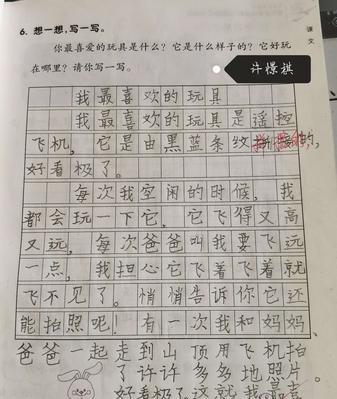 课文
6. 想一想，写一写。
你最喜爱的玩具是什么？它是什么样子的？它好玩
在哪里？请你写一写。
许憬祺
我最喜欢的玩具
我最喜欢的玩具是遥控
飞机，它是由黑蓝条纹的，
好看极了。
每次我空闲的时候，我
都会玩一下它，它飞得又高
又远，每次爸爸叫我要飞远
一点，我担心它飞着飞着就
飞不见了。悄悄告诉你它还
能拍照呢！有一次我和妈妈、
爸爸一起走到山顶用飞机拍
了许许多多地照片。
好看极了。这就我最喜